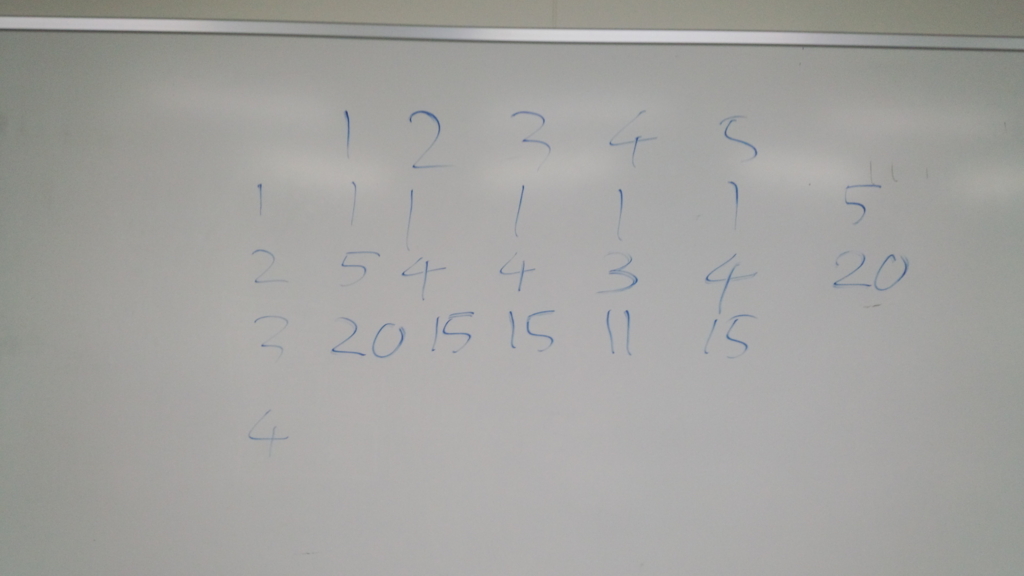 1 2 3 4 5
1 1 1 1 1 1 5
2 5 4 4 3 4 20
3 20 15 15 11 15
4